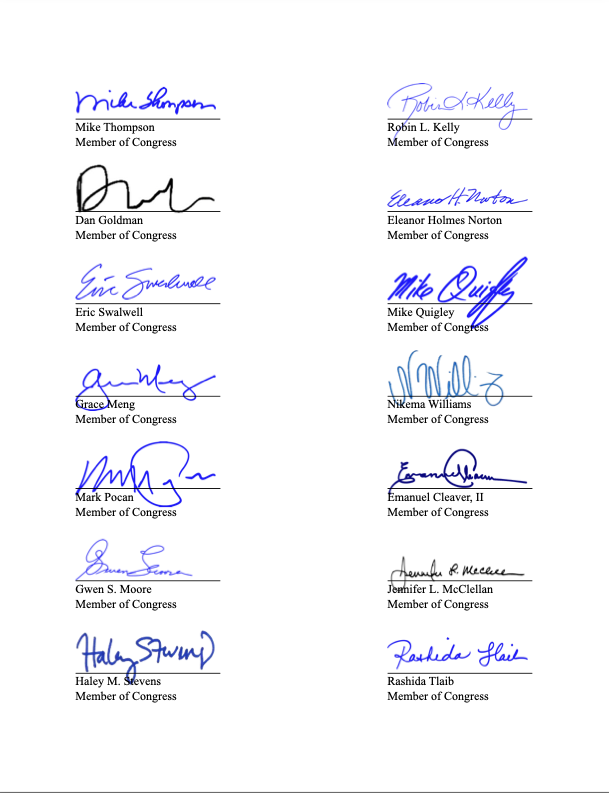 Mike Thompson
Mike Thompson
Member of Congress
Robin L Kelly
Robin L. Kelly
Member of Congress
Dan Goldman
Member of Congress
Eleanor H. Norton
Eleanor Holmes Norton
Member of Congress
Eric Swalwell
Eric Swalwell
Member of Congress
Mike Quigley
Mike Quigley
Member of Congress
Grace Meng
Member of Congress
Nikema Williams
Member of Congress
Mark Pocan
Member of Congress
Emanuel Cleaver
Emanuel Cleaver, II
Member of Congress
Gwen S. Moore
Member of Congress
Jennifer L. McClellan
Member of Congress
Haley Stevens
Haley M. Stevens
Member of Congress
Rashida Tlaib
Rashida Tlaib
Member of Congress